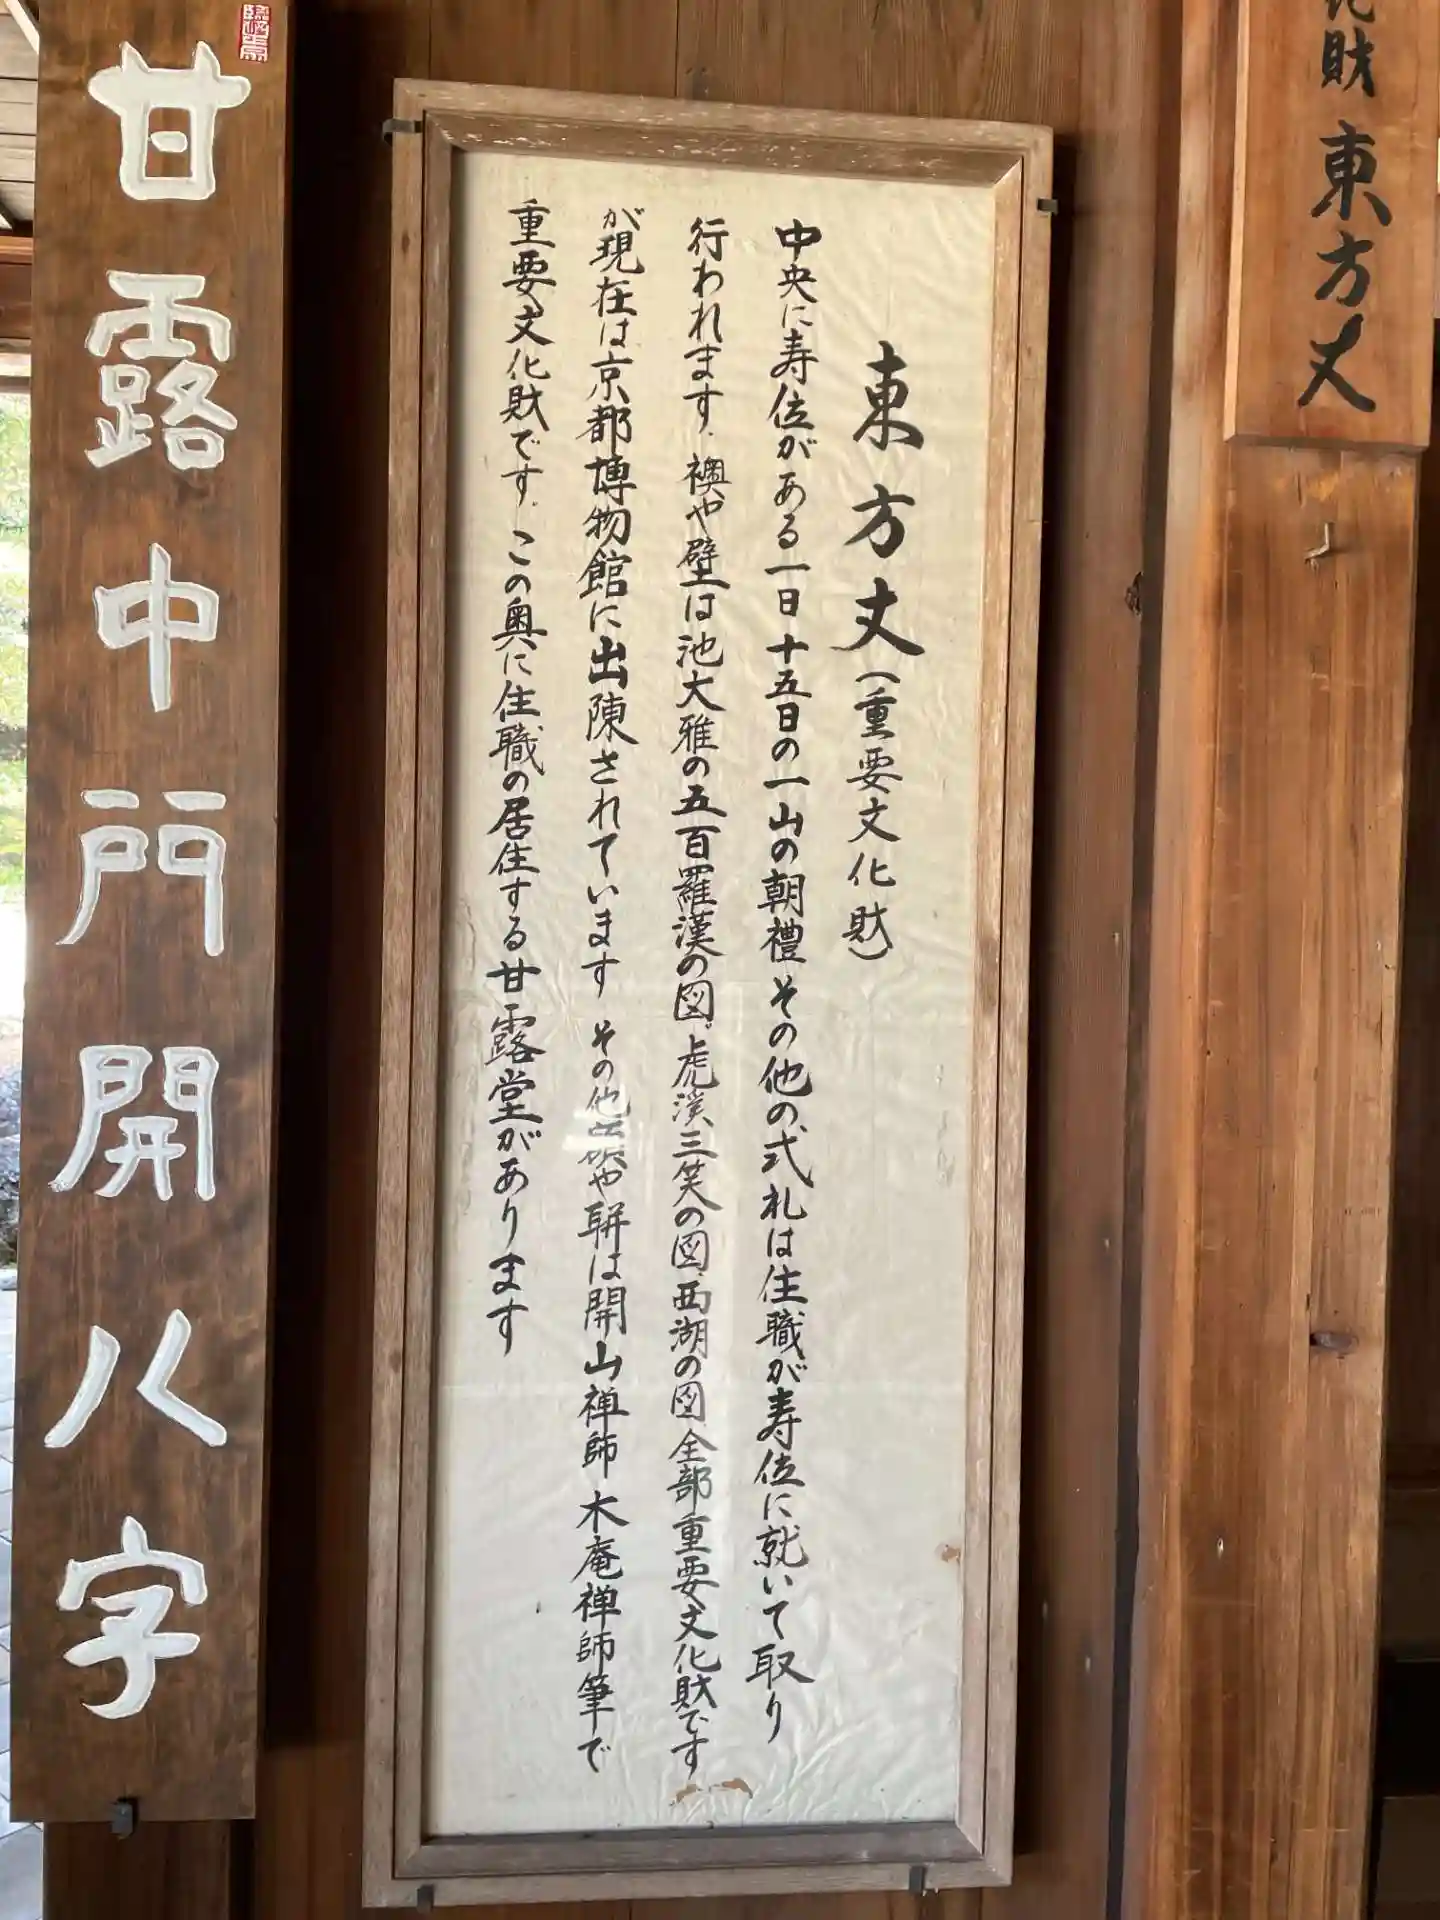 化財 東方丈
東方丈(重要文化財)
中央に寿位がある一日十五日の一山の朝禮その他の式礼は住職が寿位に就いて取り
行われます.襖や壁は池大雅の五百羅漢の図.虎溪三笑の図.西湖の図.全部重要文化財です
が現在は京都博物館に出陳されています その他や聯は開山禅師 木庵禅師筆で
重要文化財です.この奥に住職の居住する甘露堂があります
甘露中門開八字